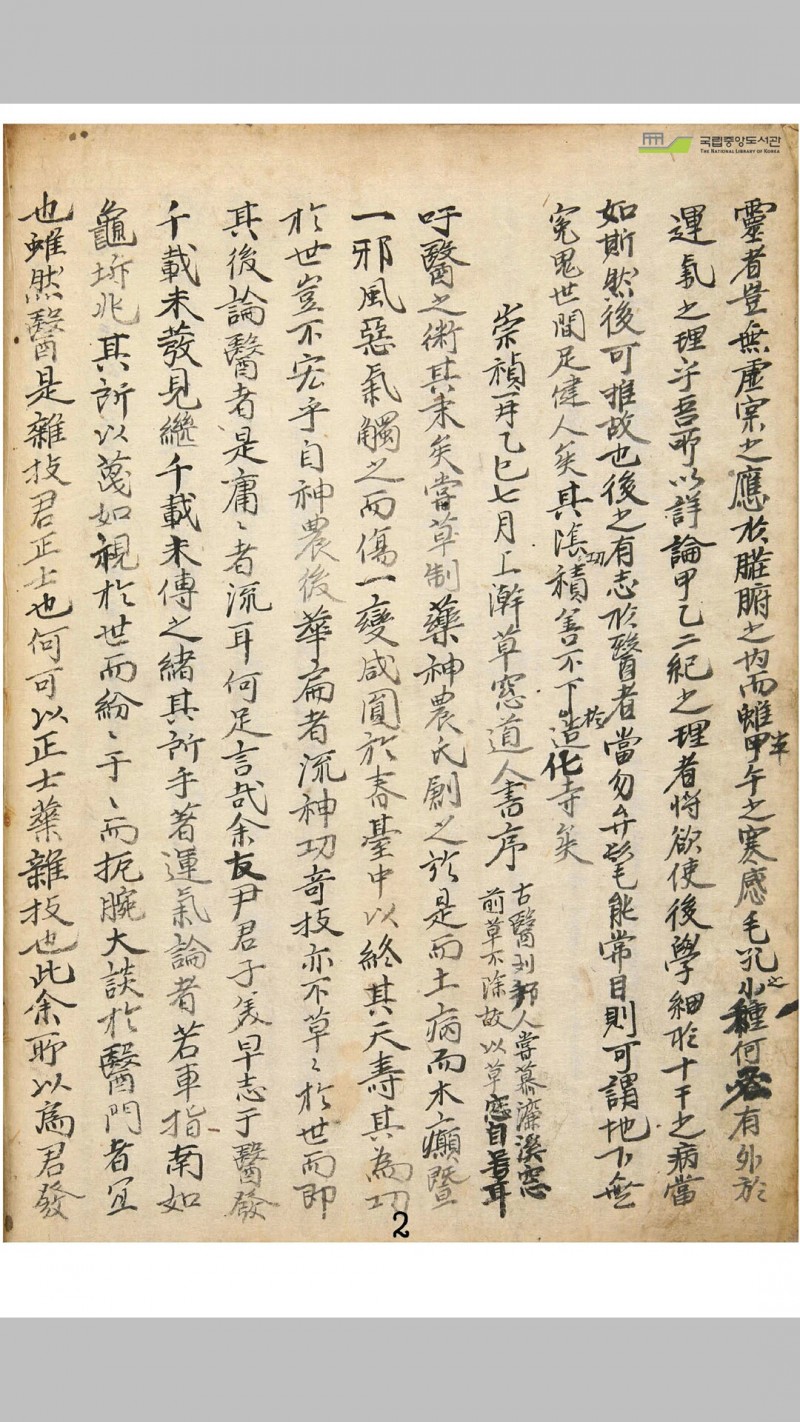 국립중앙도서관
THE NATIONAL LIBRARY OF KOREA
靈者豈無虛宲之應於臟腑之內而雖甲午之寒感毛孔之小種何有外於
運氣之理乎吾所以詳論甲乙二紀之理者將欲使後學細於十干之病當
如斯然後可推故也後之有志於醫者當勿弁髦能常目則可謂地下無
寃鬼世間足健人矣其陰功積善不下於造化寺矣
崇禎再乙巳七月上澣草窓道人書序
古醫刘郭人嘗慕濂溪窓
前草不除故以草窓自号耳
吁醫之術其来矣嘗草制藥神農氏創之於是而土病而木癲暨
一邪風惡氣觸之而傷一變咸圓於春臺中以終其天壽其為功
於世豈不宏乎自神農後華扁者流神功奇技亦不草〻於世而即
其後論醫者是庸〻者流耳何足言哉余友尹君子美早志于醫發
千載未發見繼千載未傳之緖其所手著運氣論者若車指南如
龜坼兆其所以蔑如視於世而紛〻于〻而扼腕大談於醫門者宜
也雖然醫是雜技君正士也何可以正士藥雜技也此余所以爲君發
2